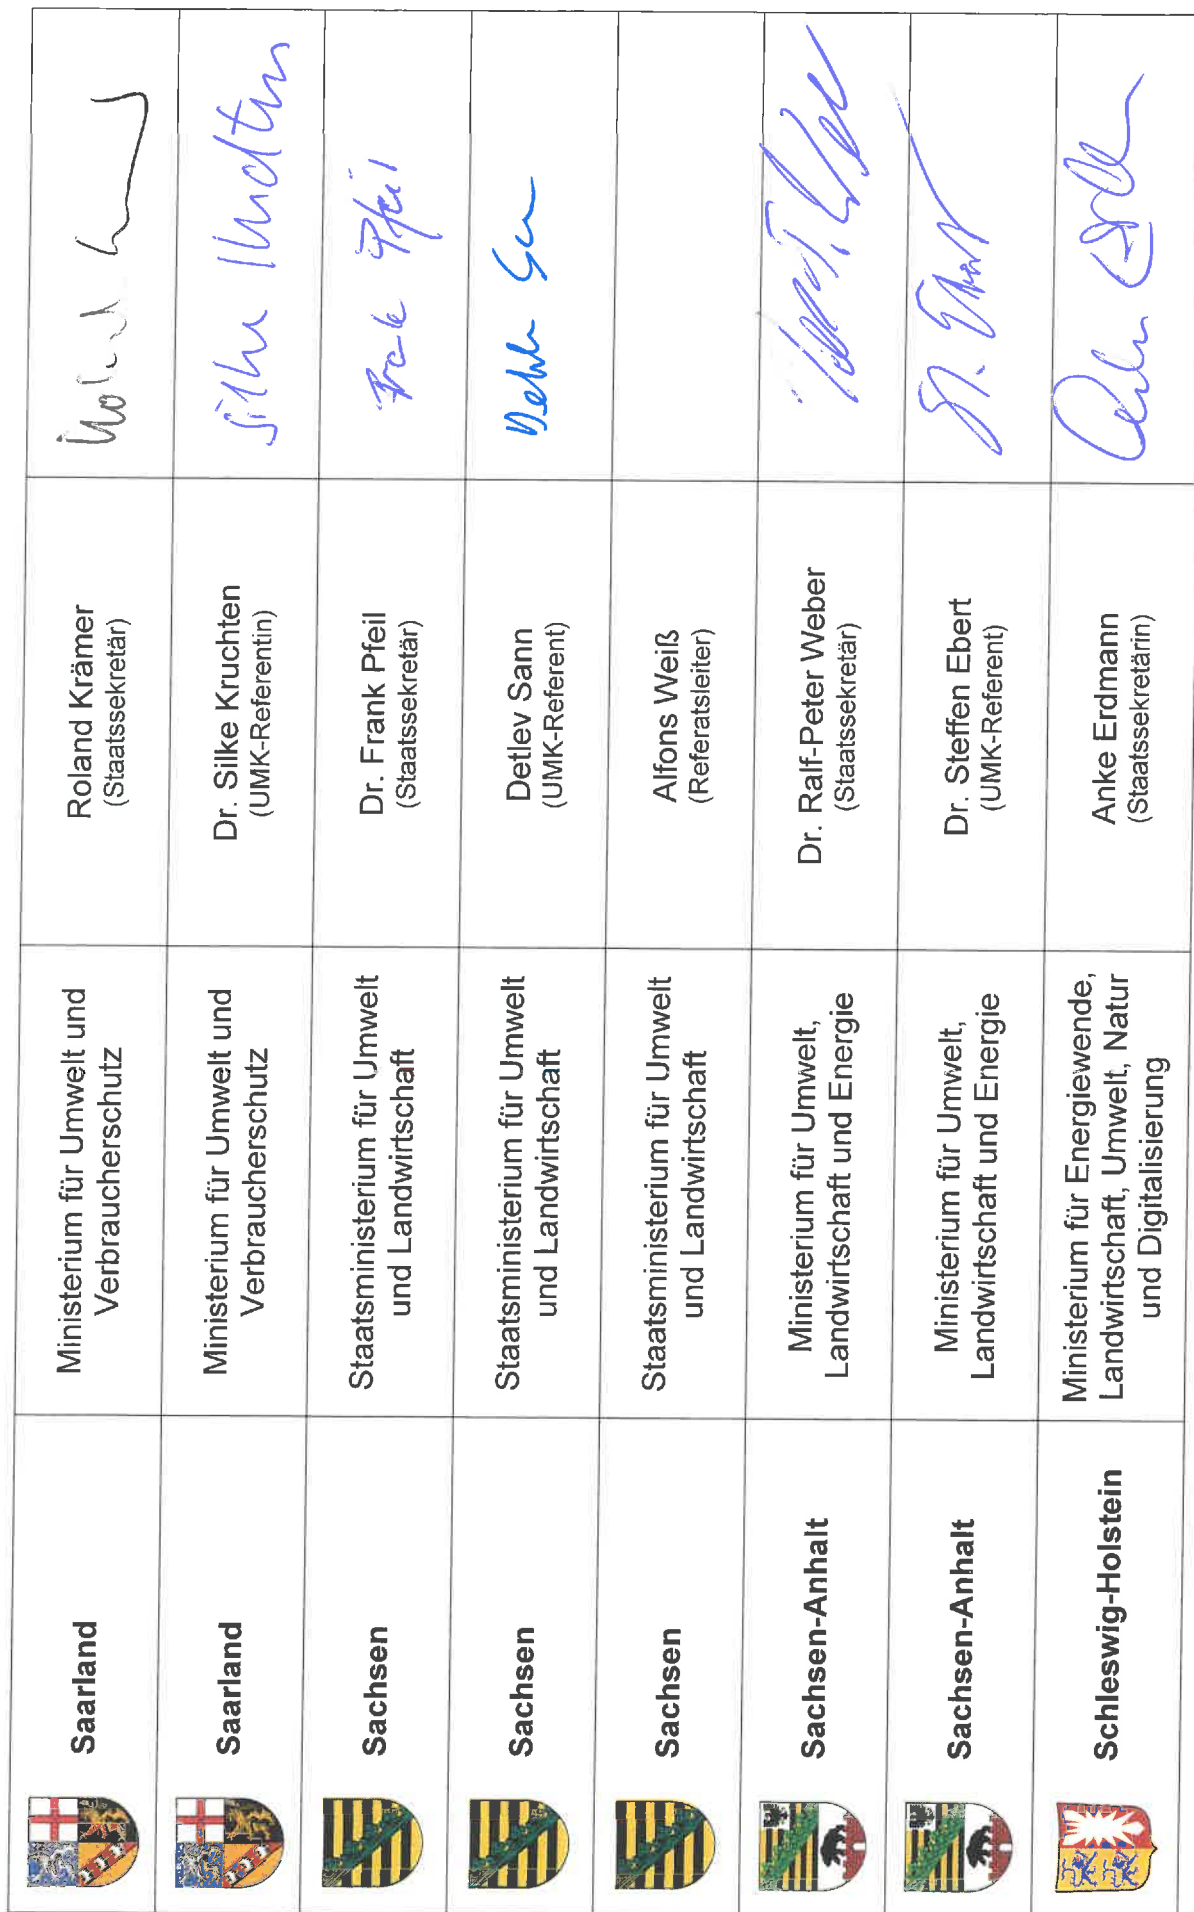 Saarland
Ministerium für Umwelt und
Verbraucherschutz
Roland Krämer
(Staatssekretär)
Saarland
Ministerium für Umwelt und
Verbraucherschutz
Dr. Silke Kruchten
(UMK-Referentin)
Silke Kruchten
Sachsen
Staatsministerium für Umwelt
und Landwirtschaft
Dr. Frank Pfeil
(Staatssekretär)
Frank Pfeil
Sachsen
Staatsministerium für Umwelt
und Landwirtschaft
Detlev Sann
(UMK-Referent)
Sachsen
Staatsministerium für Umwelt
und Landwirtschaft
Alfons Weiß
(Referatsleiter)
Sachsen-Anhalt
Ministerium für Umwelt,
Landwirtschaft und Energie
Dr. Ralf-Peter Weber
(Staatssekretär)
Sachsen-Anhalt
Ministerium für Umwelt,
Landwirtschaft und Energie
Dr. Steffen Ebert
(UMK-Referent)
St. Ebert
Schleswig-Holstein
Ministerium für Energiewende,
Landwirtschaft, Umwelt, Natur
und Digitalisierung
Anke Erdmann
(Staatssekretärin)